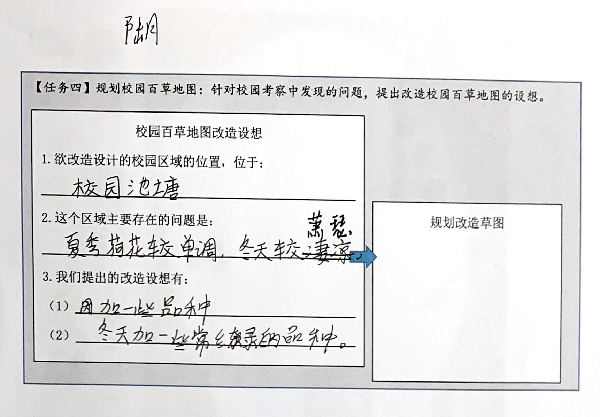 【任务四】规划校园百草地图：针对校园考察中发现的问题，提出改造校园百草地图的设想。
校园百草地图改造设想
1.欲改造设计的校园区域的位置，位于：
校园池塘
2.这个区域主要存在的问题是：
萧瑟
夏季荷花较单调，冬天较凄凉。
3.我们提出的改造设想有：
（1）因加一些品种
（2）冬天加一些常绿的品种。
规划改造草图